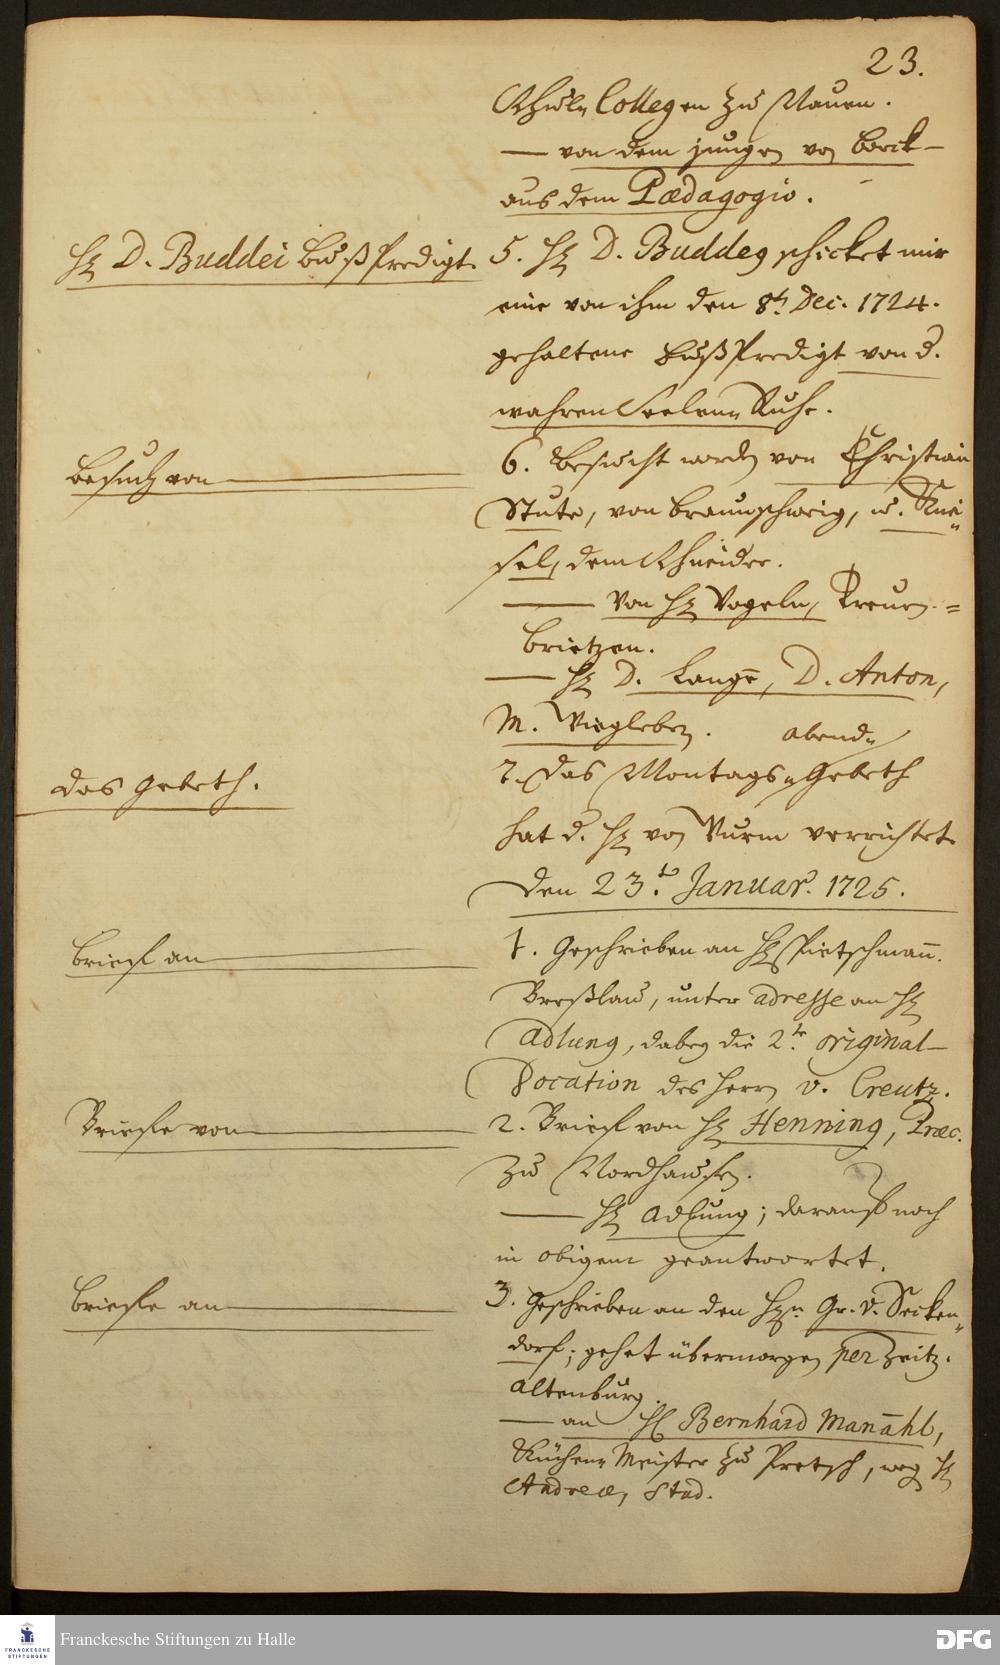 23.
Schul-Collegen zu Nauen.
— von dem jungen von Borck
aus dem Pædagogio.
H. D. Buddei BußPredigt.
5. H. D. Buddeg schicket mir
eine von ihm den 8t. Dec. 1724.
gehaltene BußPredigt von d.
wahren Seelen-Ruhe.
Besuch von
6. Besucht worden von Christian
Stute, von Braunschweig, u. Knei-
sel, dem Schneider.
— von H. Vogeln, Treuen-
brietzen.
— H. D. Lange, D. Anton,
M. Wiegleben.
abend-
das Gebeth.
7. Das Montags-Gebeth
hat d. H. von Wurm verrichtet.
Den 23.t Januar. 1725.
Brief an
1. Geschrieben an H. Pietschmann.
Breßlau, unter adresse an H.
Adlung, dabey die 2.te original-
Vocation des Herrn v. Creutz.
Briefe von
2. Brief von H. Henning, Præc.
zu Nordhausen.
— H. Adlung; darauf noch
in obigem geantwortet.
Briefe an
3. Geschrieben an den H.n Gr. v. Secken-
dorf; gehet übermorgen per Zeitz.
Altenburg.
— an H. Bernhard Manahl,
Küchen-Meister zu Pretsch, weg. H.
Andreæ, Stud.
Franckesche Stiftungen zu Halle
FRANCKESCHE
STIFTUNGEN
DFG